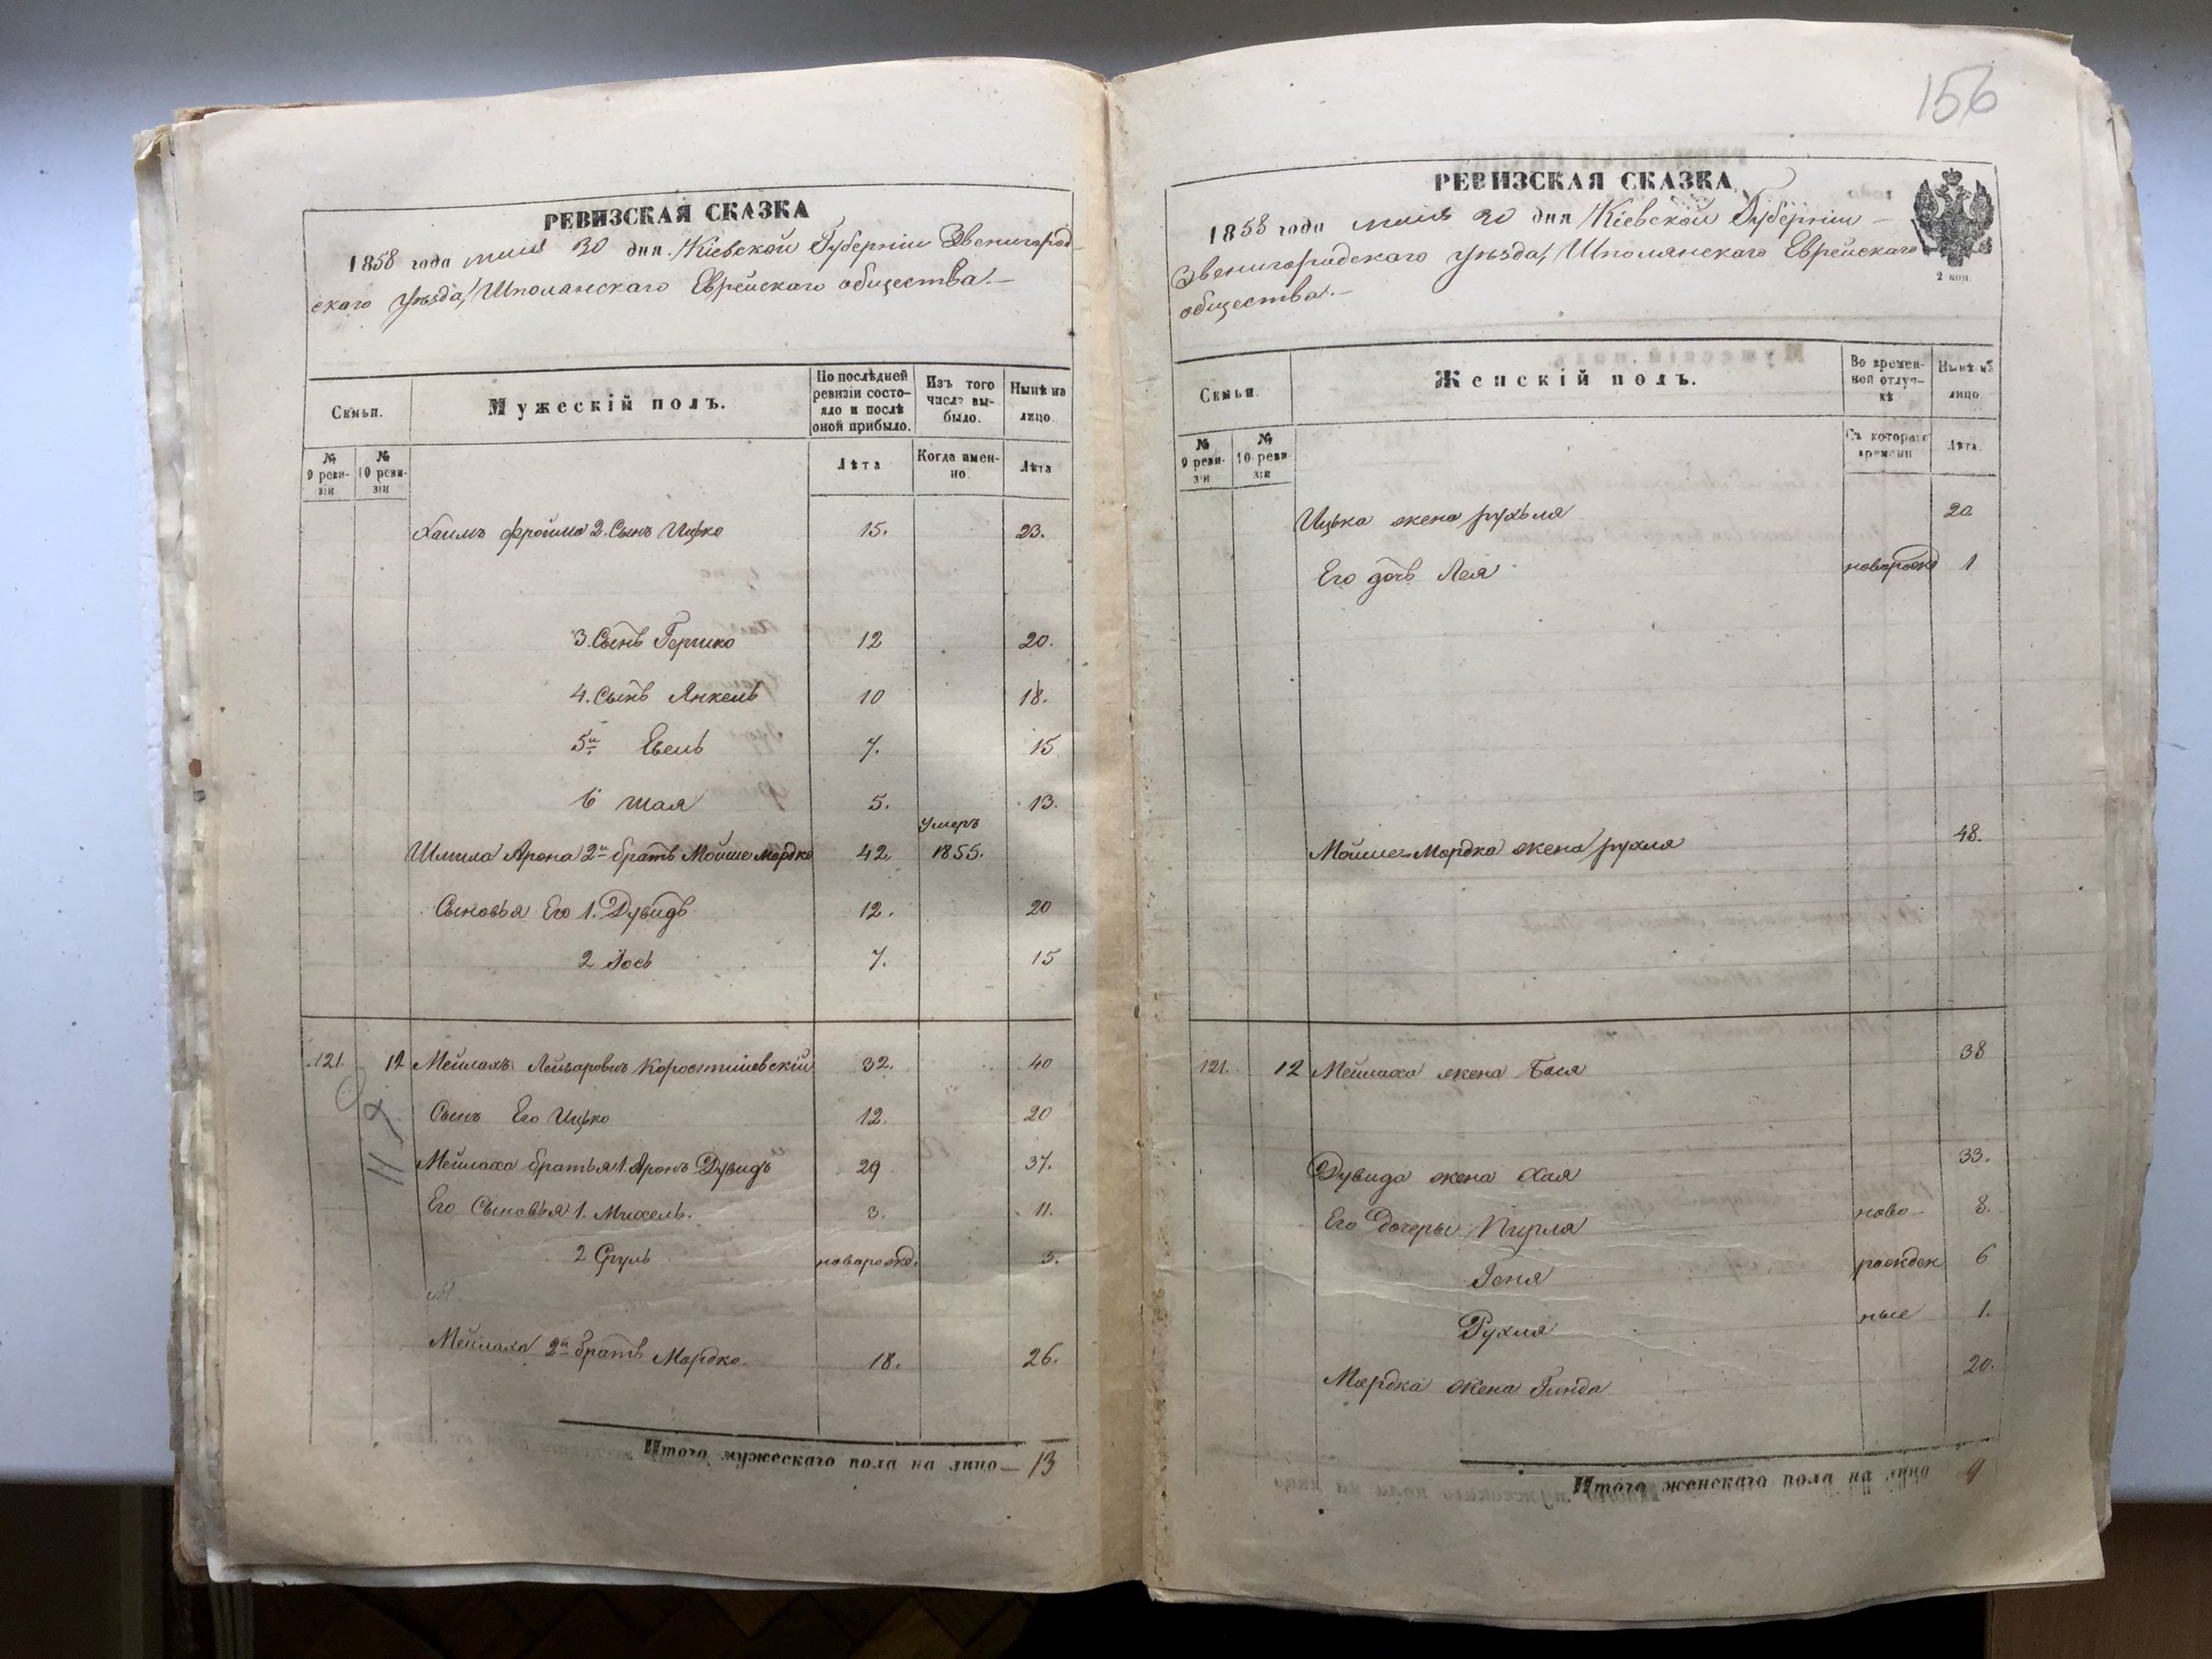 РЕВИЗСКАЯ СКАЗКА
1858 года мая 30 дня Кіевской Губерніи Звенигород-
скаго уѣзда, Шполянскаго Еврейскаго общества.—
Семьи.
Мужескій полъ.
По послѣдней ревизіи состояло и послѣ оной прибыло.
Изъ того числа выбыло.
Нынѣ на лицо
№ 9 реви-зіи
№ 10 реви-зіи
Лѣта
Когда имен-но.
Лѣта
Хаимъ Фройма 2. Сынъ Ицко 15. 23.
3. Сынъ Гершко 12 20.
4. Сынъ Янкель 10 18.
5й Евель 7. 15
6 Шая 5. 13.
умеръ
Шмила Арона 2й братъ Мойше Мордко 42. 1855.
Сыновья Его 1. Дувидъ 12. 20
2 Іось 7. 15
121. 12 Мейлахъ Лейзаровъ Коростишевскій 32. 40
Сынъ Его Ицько 12. 20
Мейлаха братья 1. Аронъ Дувидъ 29 37.
Его Сыновья 1. Михель. 3. 11.
2 Сруль новорожд. 3.
Мейлаха 2й братъ Мордко. 18. 26.
Итого мужескаго пола на лицо — 13
156
РЕВИЗСКАЯ СКАЗКА
1858 года мая 30 дня Кіевской Губерніи —
Звенигородскаго уѣзда, Шполянскаго Еврейскаго
общества.—
2 коп.
Семьи.
Женскій полъ.
Во времен-ной отлуч-кѣ
Нынѣ на лицо
№ 9 реви-зіи
№ 10 реви-зіи
Съ котораго времени
Лѣта.
Ицька жена рухьля 20
Его дочь Лея новорожд 1
Мойше-Мордка жена рухля 48.
121. 12 Мейлаха жена Бася 38
Дувида жена Хая 33.
Его Дочеры Пурля ново- 8.
Геня рожден 6
Рухля ные 1.
Мордка жена Гинда 20.
Итого женскаго пола на лицо 9